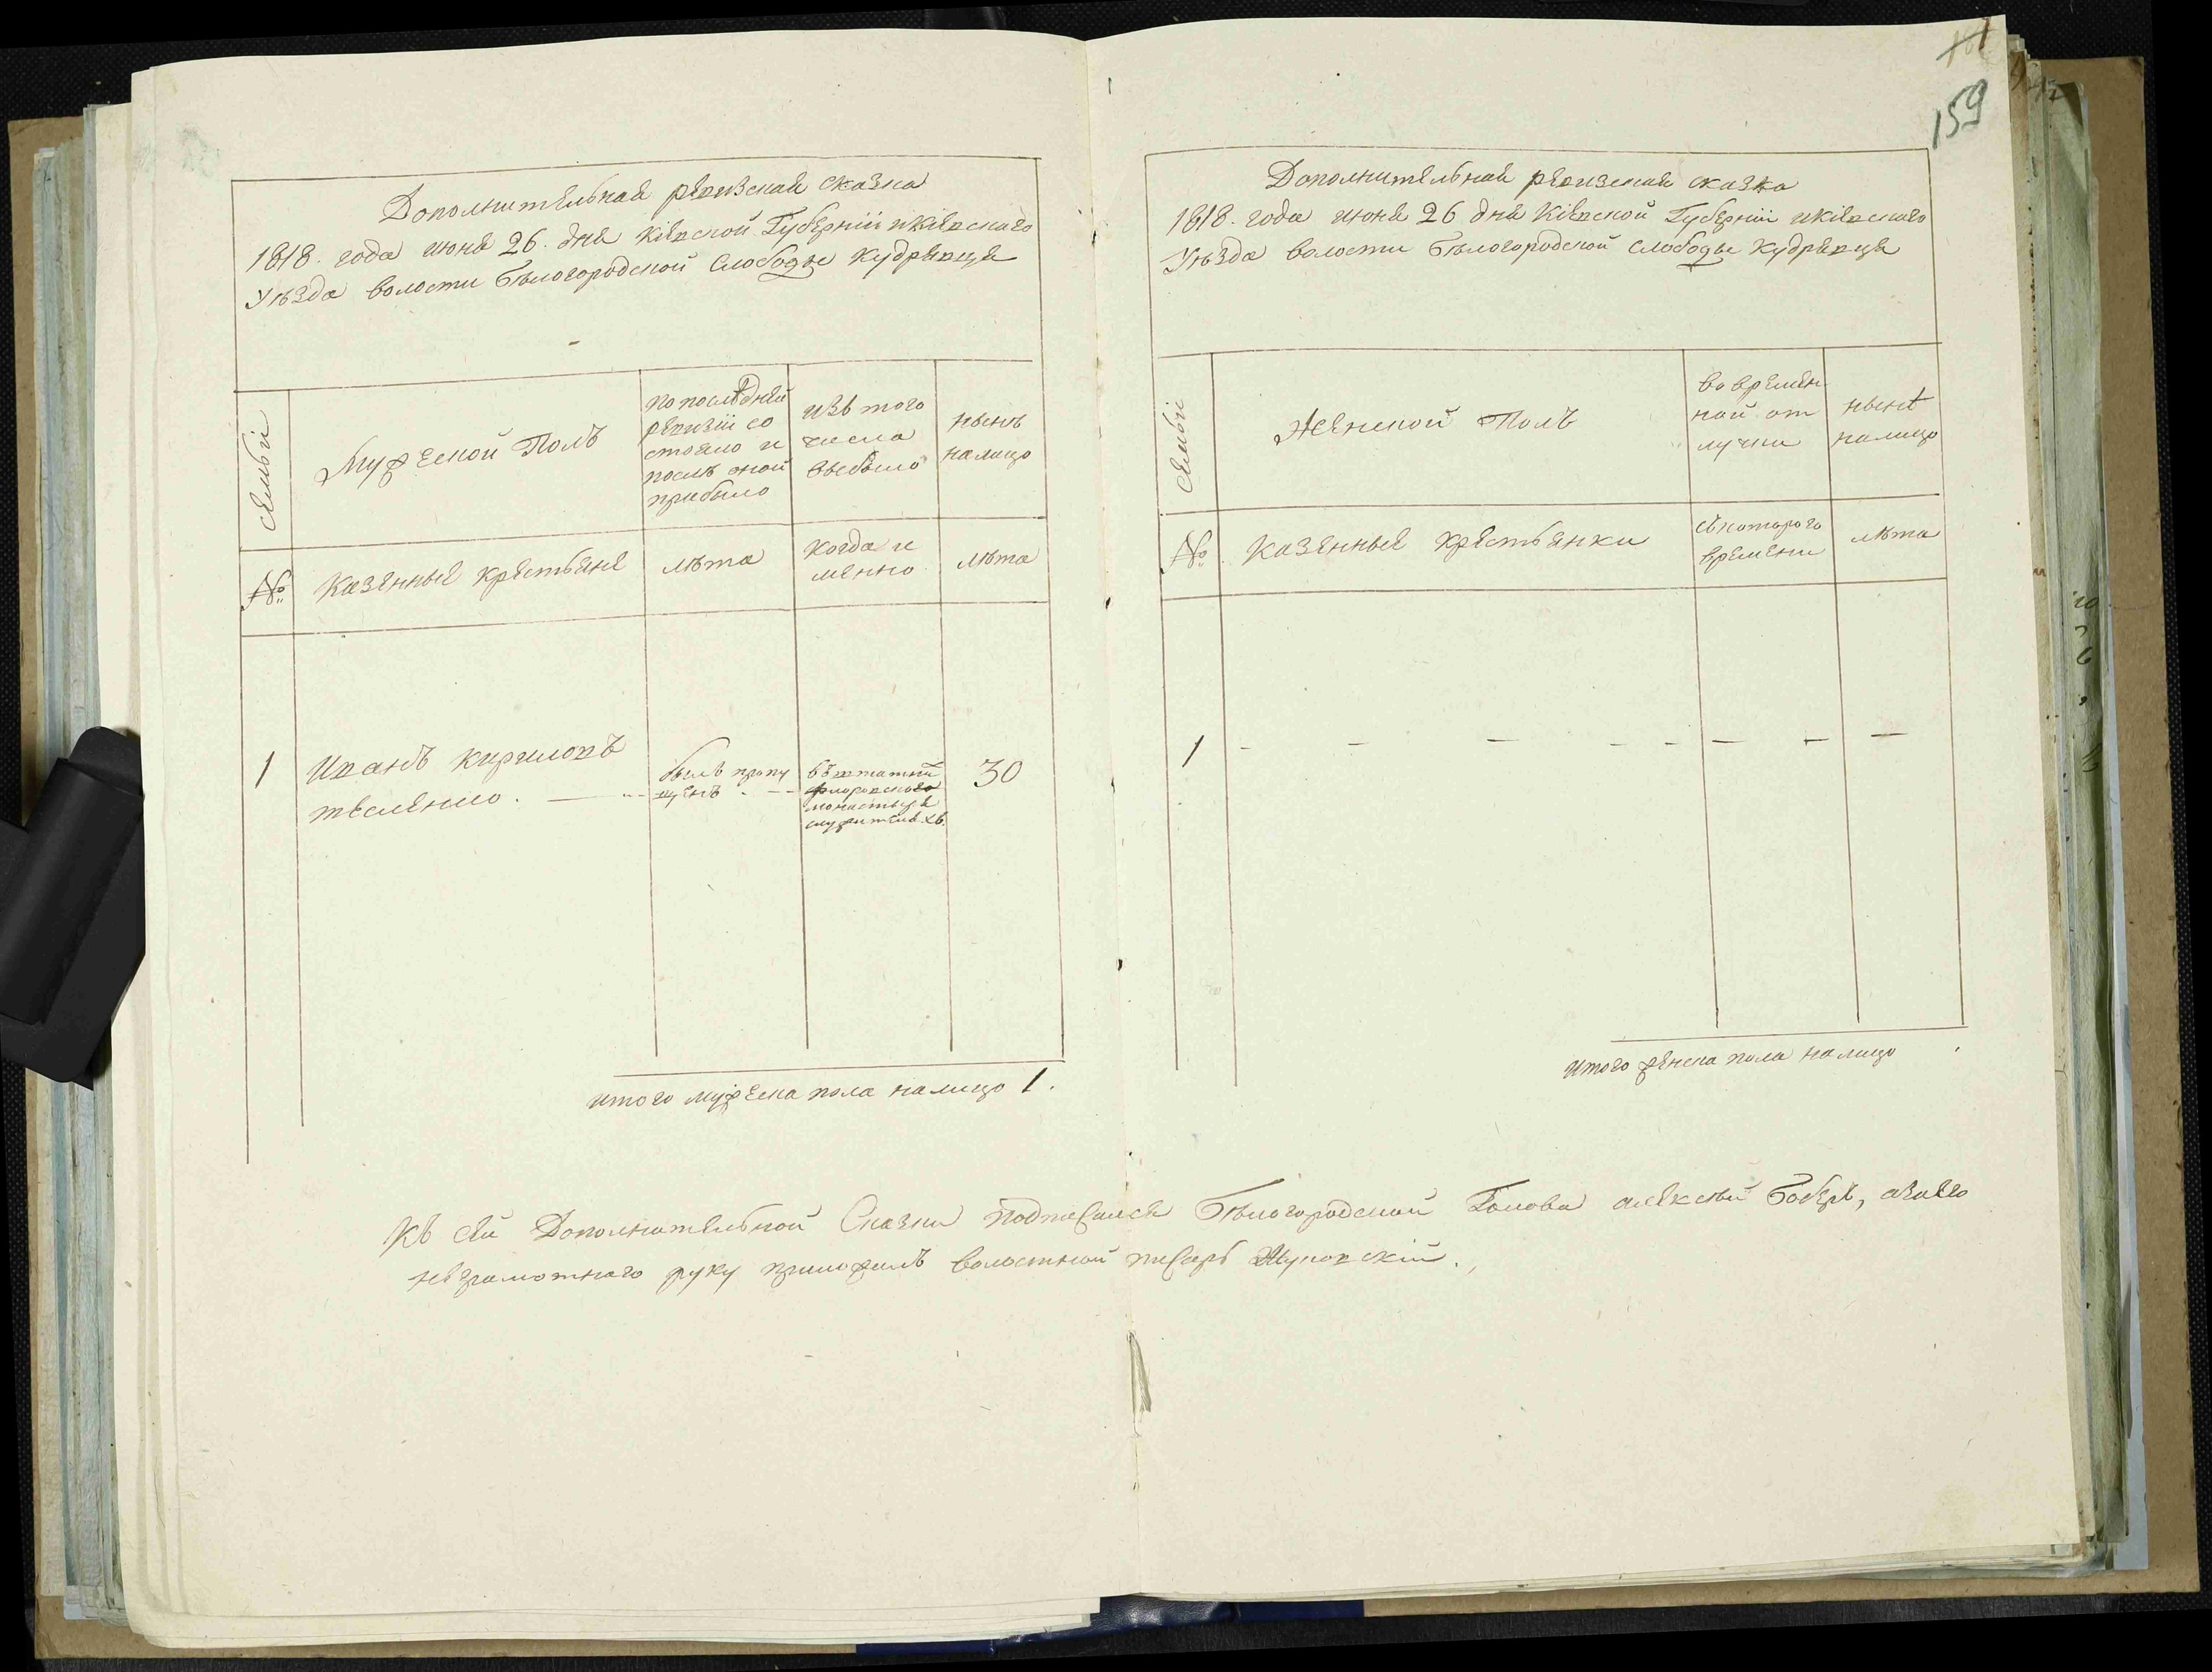 159
Дополнительная ревизская сказка
1818. года июня 26. дня Кіевской Губерніи и Кіевского
Уѣзда волости Бѣлогородской Слободы Кудрявця
Семьи
Мужеской Полъ
по последней
ревизіи со
стояло и
послѣ оной
прибыло
изъ того
числа
выбыло
нынѣ
налицо
№
Казенные крестьяне
лѣта
когда и
менно
лѣта
1
Иванъ Кириловъ
былъ пропу
щенъ
въ штатнй
флоровского
монастыря
30
итого мужеска пола налицо 1.
Дополнительная ревизская сказка
1818. года июня 26 дня Кіевской Губерніи и Кіевского
Уѣзда волости Бѣлогородской слободы Кудрявця
Семьи
Женской Полъ
во времен
ной от
лучки
нынѣ
налицо
№
Казенные крестьянки
съ котораго
времени
лѣта
1
итого женска пола налицо
Къ сей Дополнительной Сказки подписался Бѣлогородской Голова алексѣй Боберъ, а за его
неграмотнаго руку приложилъ волостной писарь